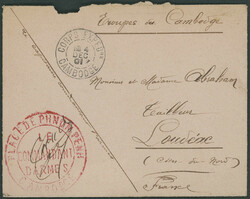 Troupes du Cambodge
CORPS EXPED.RE
4
DEC
01
CAMBODGE
Monsieur et Madame Abraham
Tailleur
Loudéac
(Côtes du Nord)
France
PLACE DE PHNOM-PENH
LE
COMMANDANT
D'ARMES
CAMBODGE